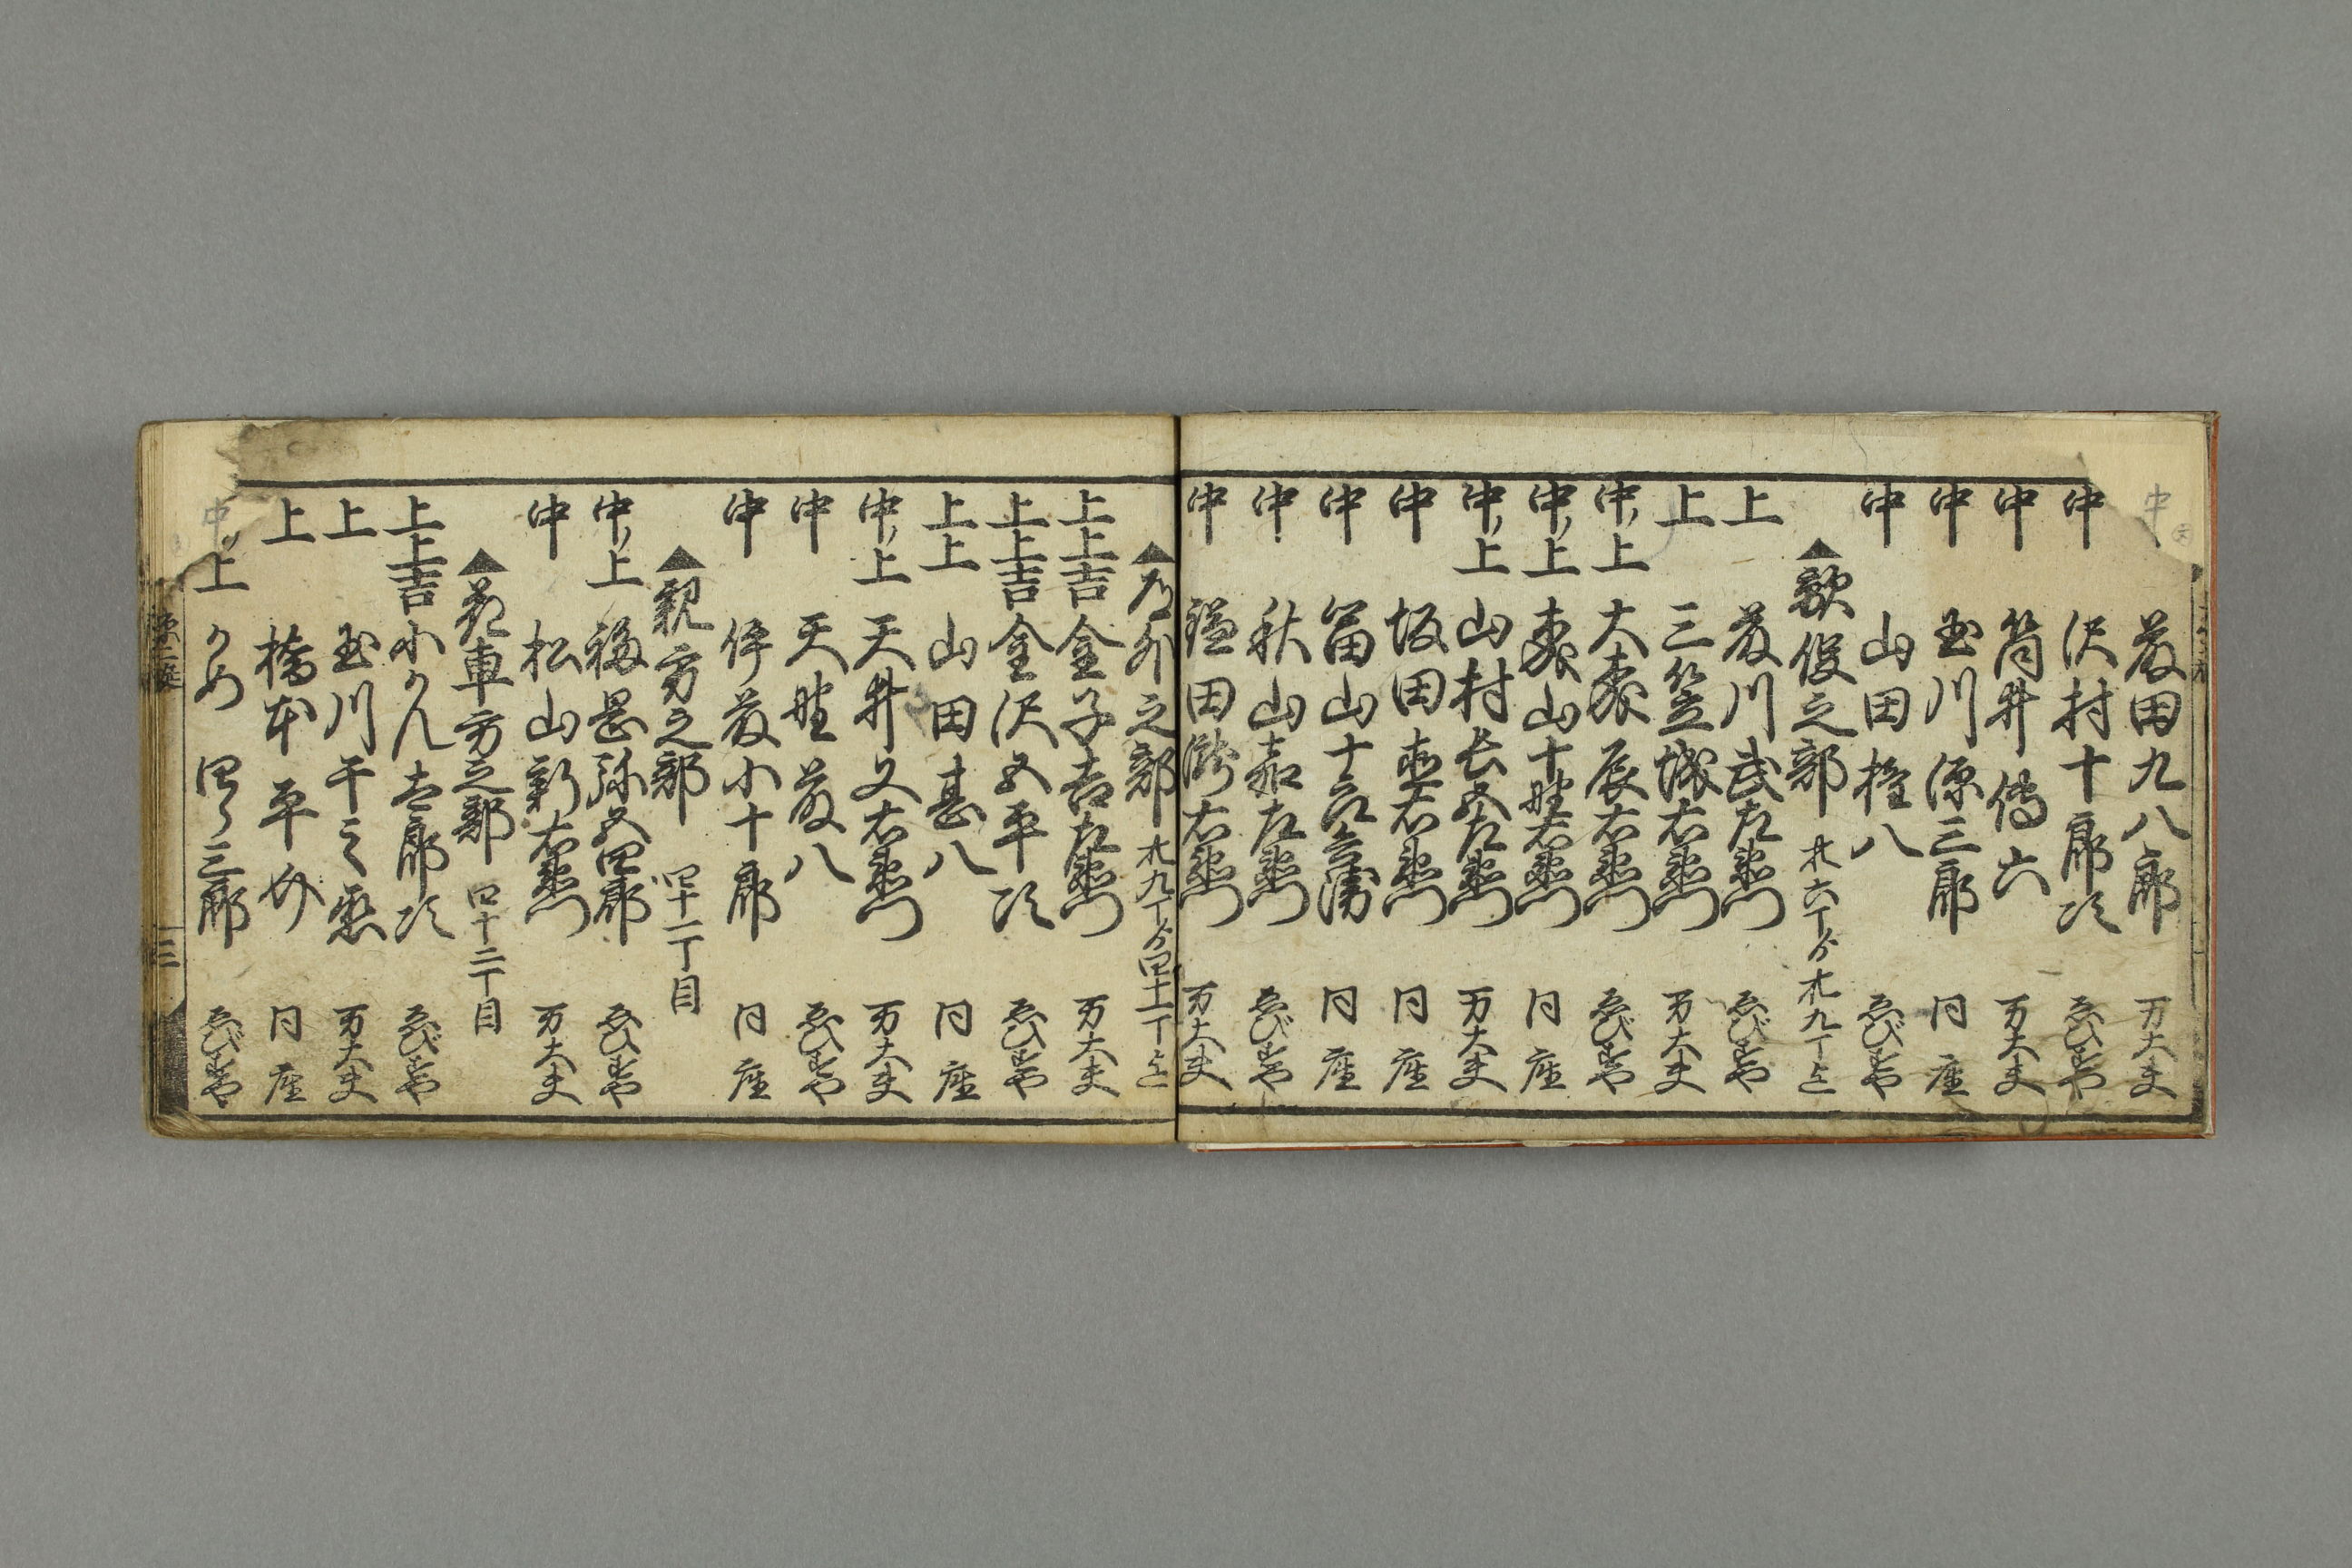 中 藤田九八郎 万太夫
中 沢村十郎次 ゑびすや
中 筒井傳六 万太夫
中 玉川源三郎 同座
中 山田権八 ゑびすや
▲敵役之部 廿六丁ゟ廿九丁迄
上 藤川武左衛門 ゑびすや
上 三笠城右衛門 万太夫
中ノ上 大森辰右衛門 ゑびすや
中ノ上 森山十野右衛門 同座
中ノ上 山村長五左衛門 万太夫
中 坂田市右衛門 同座
中 富山十 同座
中 秋山嘉左衛門 ゑびすや
中 鎌田瀧右衛門 万太夫
▲道外之部 廿九丁ゟ四十一丁迄
上上吉 金子吉左衛門 万太夫
上上吉 金沢五平次 ゑびすや
上上 山田甚八 同座
中ノ上 天井又右衛門 万太夫
中 天野藤八 ゑびすや
中 伊藤小十郎 同座
▲親方之部 四十一丁目
中ノ上 福岡弥五四郎 ゑびすや
中 松山新右衛門 万太夫
▲花車方之部 四十二丁目
上上吉 小かん太郎次 ゑびすや
上 玉川千之丞 万太夫
上 橋本平 同座
中ノ上 かめ 四三郎 ゑびすや
三